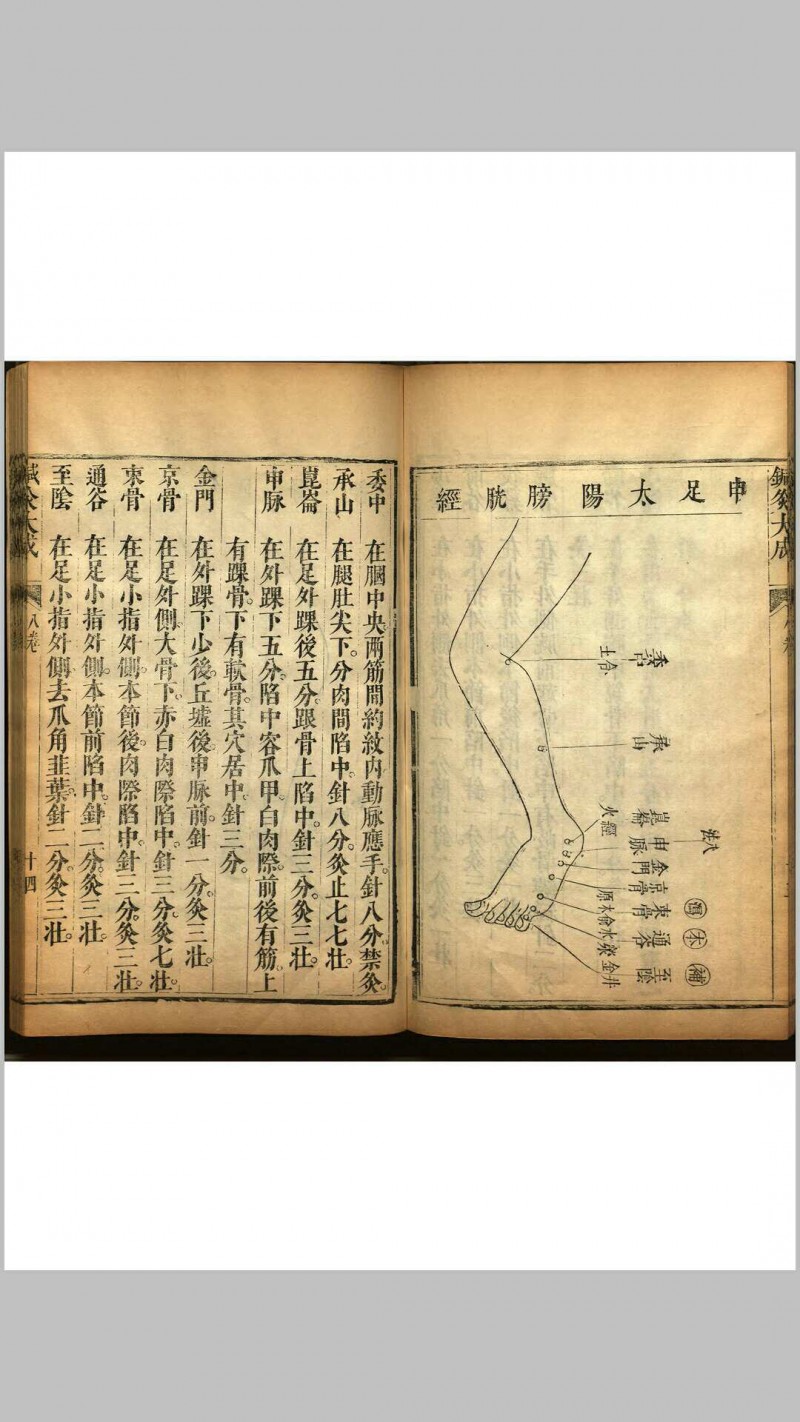 鍼灸大成
申足太陽膀胱經
委中
合
土
承山
崑崙
申脈
金門
京骨
束骨
通谷
至陰
經
火
原
木俞
水滎
金井
本
補
委中　在膕中央兩筋間約紋內動脈應手。針八分。禁灸。
承山　在腿肚尖下。分肉間陷中。針八分。灸止七七壯。
崑崙　在足外踝後五分。跟骨上陷中。針三分。灸三壯。
申脈　在外踝下五分。陷中容爪甲。白肉際。前後有筋。上
有踝骨。下有軟骨。其穴居中。針三分。
金門　在外踝下少後。丘墟後。申脈前。針一分。灸三壯。
京骨　在足外側。大骨下。赤白肉際陷中。針三分。灸七壯。
束骨　在足小指外側。本節後。肉際陷中。針二分。灸三壯。
通谷　在足小指外側。本節前陷中。針二分。灸三壯。
至陰　在足小指外側。去爪角韭葉。針二分。灸三壯。
鍼灸大成
八卷
十四